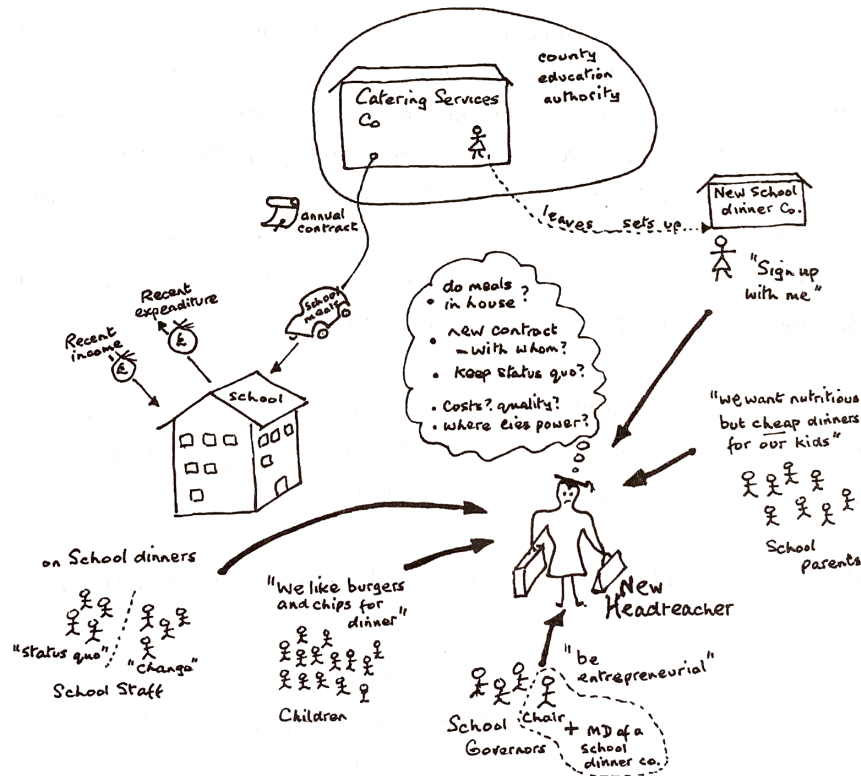 county
education
authority
Catering Services
Co
annual
contract
leaves sets up
New School
dinner Co.
"Sign up
with me"
School
meals
Recent
expenditure
Recent
income
£
£
School
• do meals
in house?
• new contract
- with whom?
• keep status quo?
• costs? quality?
• where lies power?
"we want nutritious
but cheap dinners
for our kids"
School
parents
New
Headteacher
on School dinners
"status quo"
"change"
School Staff
"We like burgers
and chips for
dinner"
Children
"be
entrepreneurial"
School
Governors
Chair
+ MD of a
school
dinner co.